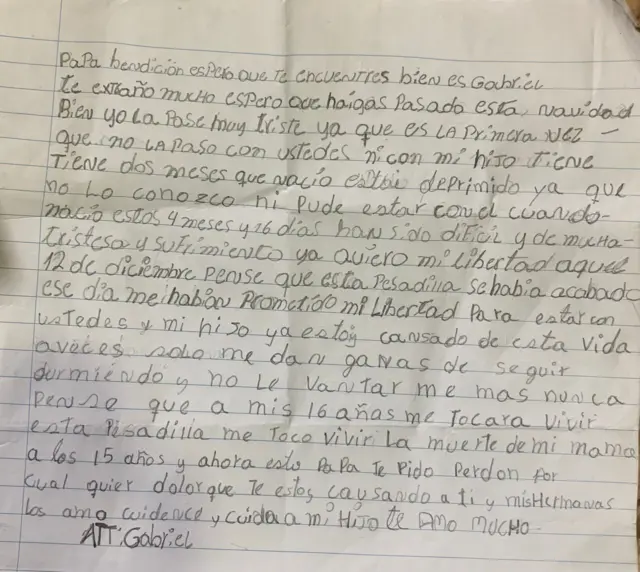 PaPa bendición espero que Te encuentres bien es Gabriel
te extraño mucho espero que haigas Pasado esta navidad
Bien yo La Pase muy triste ya que es LA Primera vez –
que no LA PASO con ustedes ni con mi hijo Tiene
Tiene dos meses que nacio deprimido ya que
no Lo conozco ni pude estar con el cuando-
nacio estos 4 meses y 16 dias han sido dificil y de mucha-
tristesa y sufrimiento ya quiero mi Libertad aquel
12 de diciembre Pense que esta Pesadilla se habia acabado
ese dia me habian Prometido mi Libertad Para estar con
ustedes y mi hijo ya estoy cansado de esta vida
aveces solo me dan ganas de seguir
durmiendo y no Le vantar me mas nunca
Pense que a mis 16 años me Tocara vivir
esta Pisadilla me Toco vivir La muerte de mi mama
a los 15 años y ahora esto PaPa Te Pido Perdon Por
cual quier dolor que Te estoy causando a ti y mis Hermanas
los amo cuidence y cuida a mi HiJo te AMO MUCHO-
ATT:Gabriel